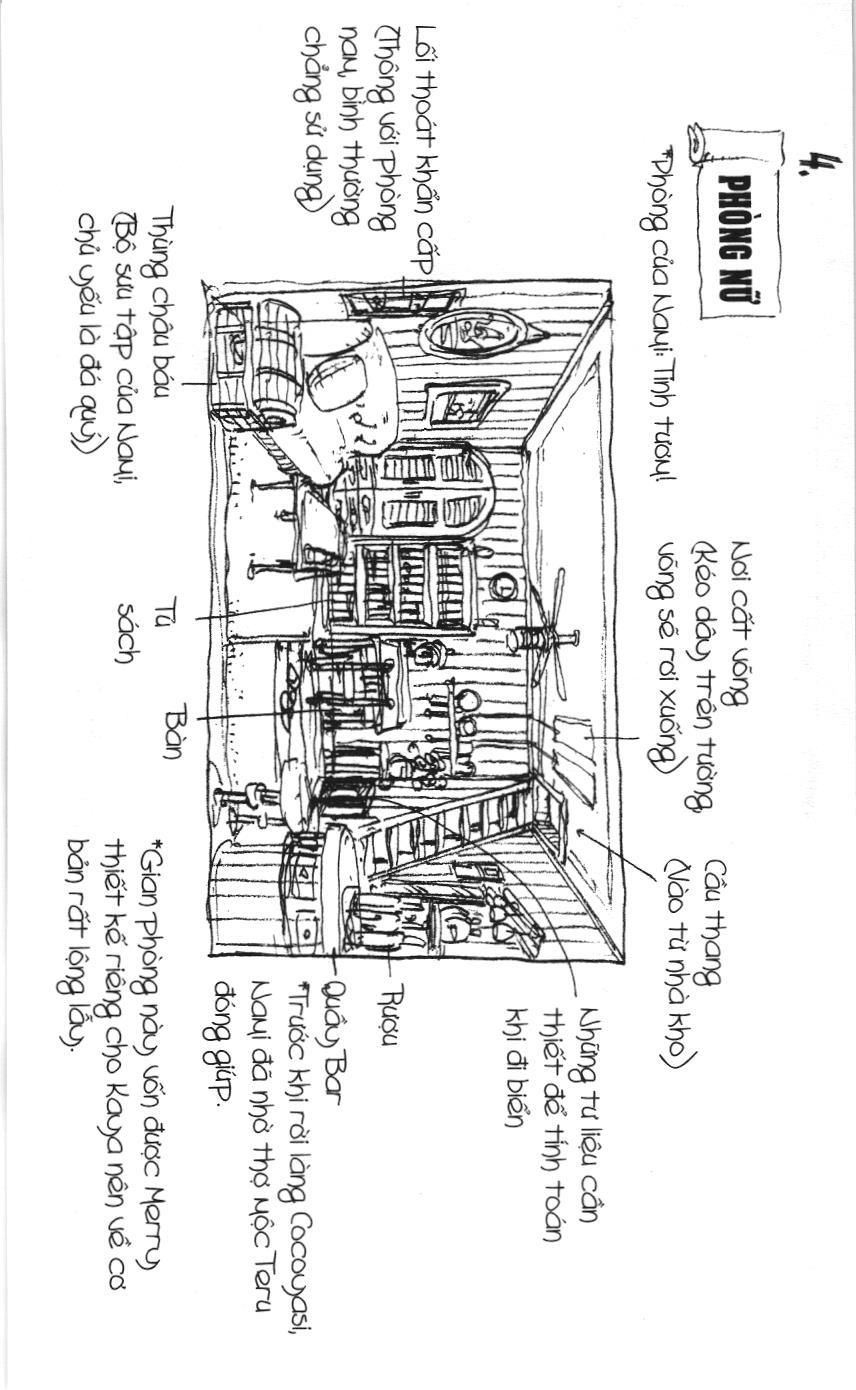 4.
PHÒNG NỮ
*Phòng của Nami: Tinh tươm!
Lối thoát khẩn cấp
(Thông với phòng
nam, bình thường
chẳng sử dụng)
Nơi cất võng
(Kéo dây trên tường,
võng sẽ rơi xuống)
Cầu thang
(Vào từ nhà kho)
Những tư liệu cần
thiết để tính toán
khi đi biển
Rượu
Quầy Bar
*Trước khi rời làng Cocoyasi,
Nami đã nhờ thợ mộc Teru
đóng giúp.
Thùng châu báu
(Bộ sưu tập của Nami,
chủ yếu là đá quý)
Tủ
sách
Bàn
*Gian phòng này vốn được Merry
thiết kế riêng cho Kaya nên về cơ
bản rất lộng lẫy.